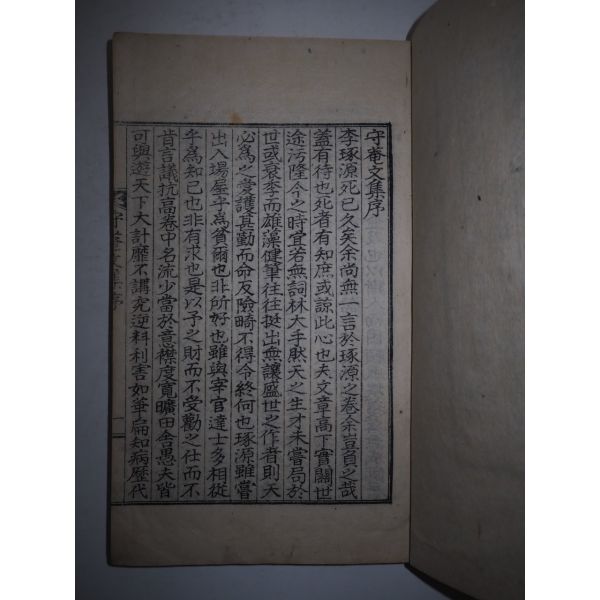 守菴文集序
李琢源死已久矣余尚無一言於琢源之卷余豈負之哉
蓋有待也死者有知庶或諒此心也夫文章高下實關世
途汚隆今之時宜若無詞林大手然天之生才未嘗局於
世或衰季而雄藻健筆往往挺出無讓盛世之作者則天
必爲之愛護甚勤而命反險畸不得令終何也琢源雖嘗
出入場屋乎爲貧爾也非所好也雖與宰官達士多相從
乎爲知已也非有求也是以予之財而不受勸之仕而不
肯言議抗高卷中名流少當於意襟度寬曠田舍愚夫皆
可與遊天下大計靡不講究逆料利害如筆扁知病歷代
守菴文集序
一